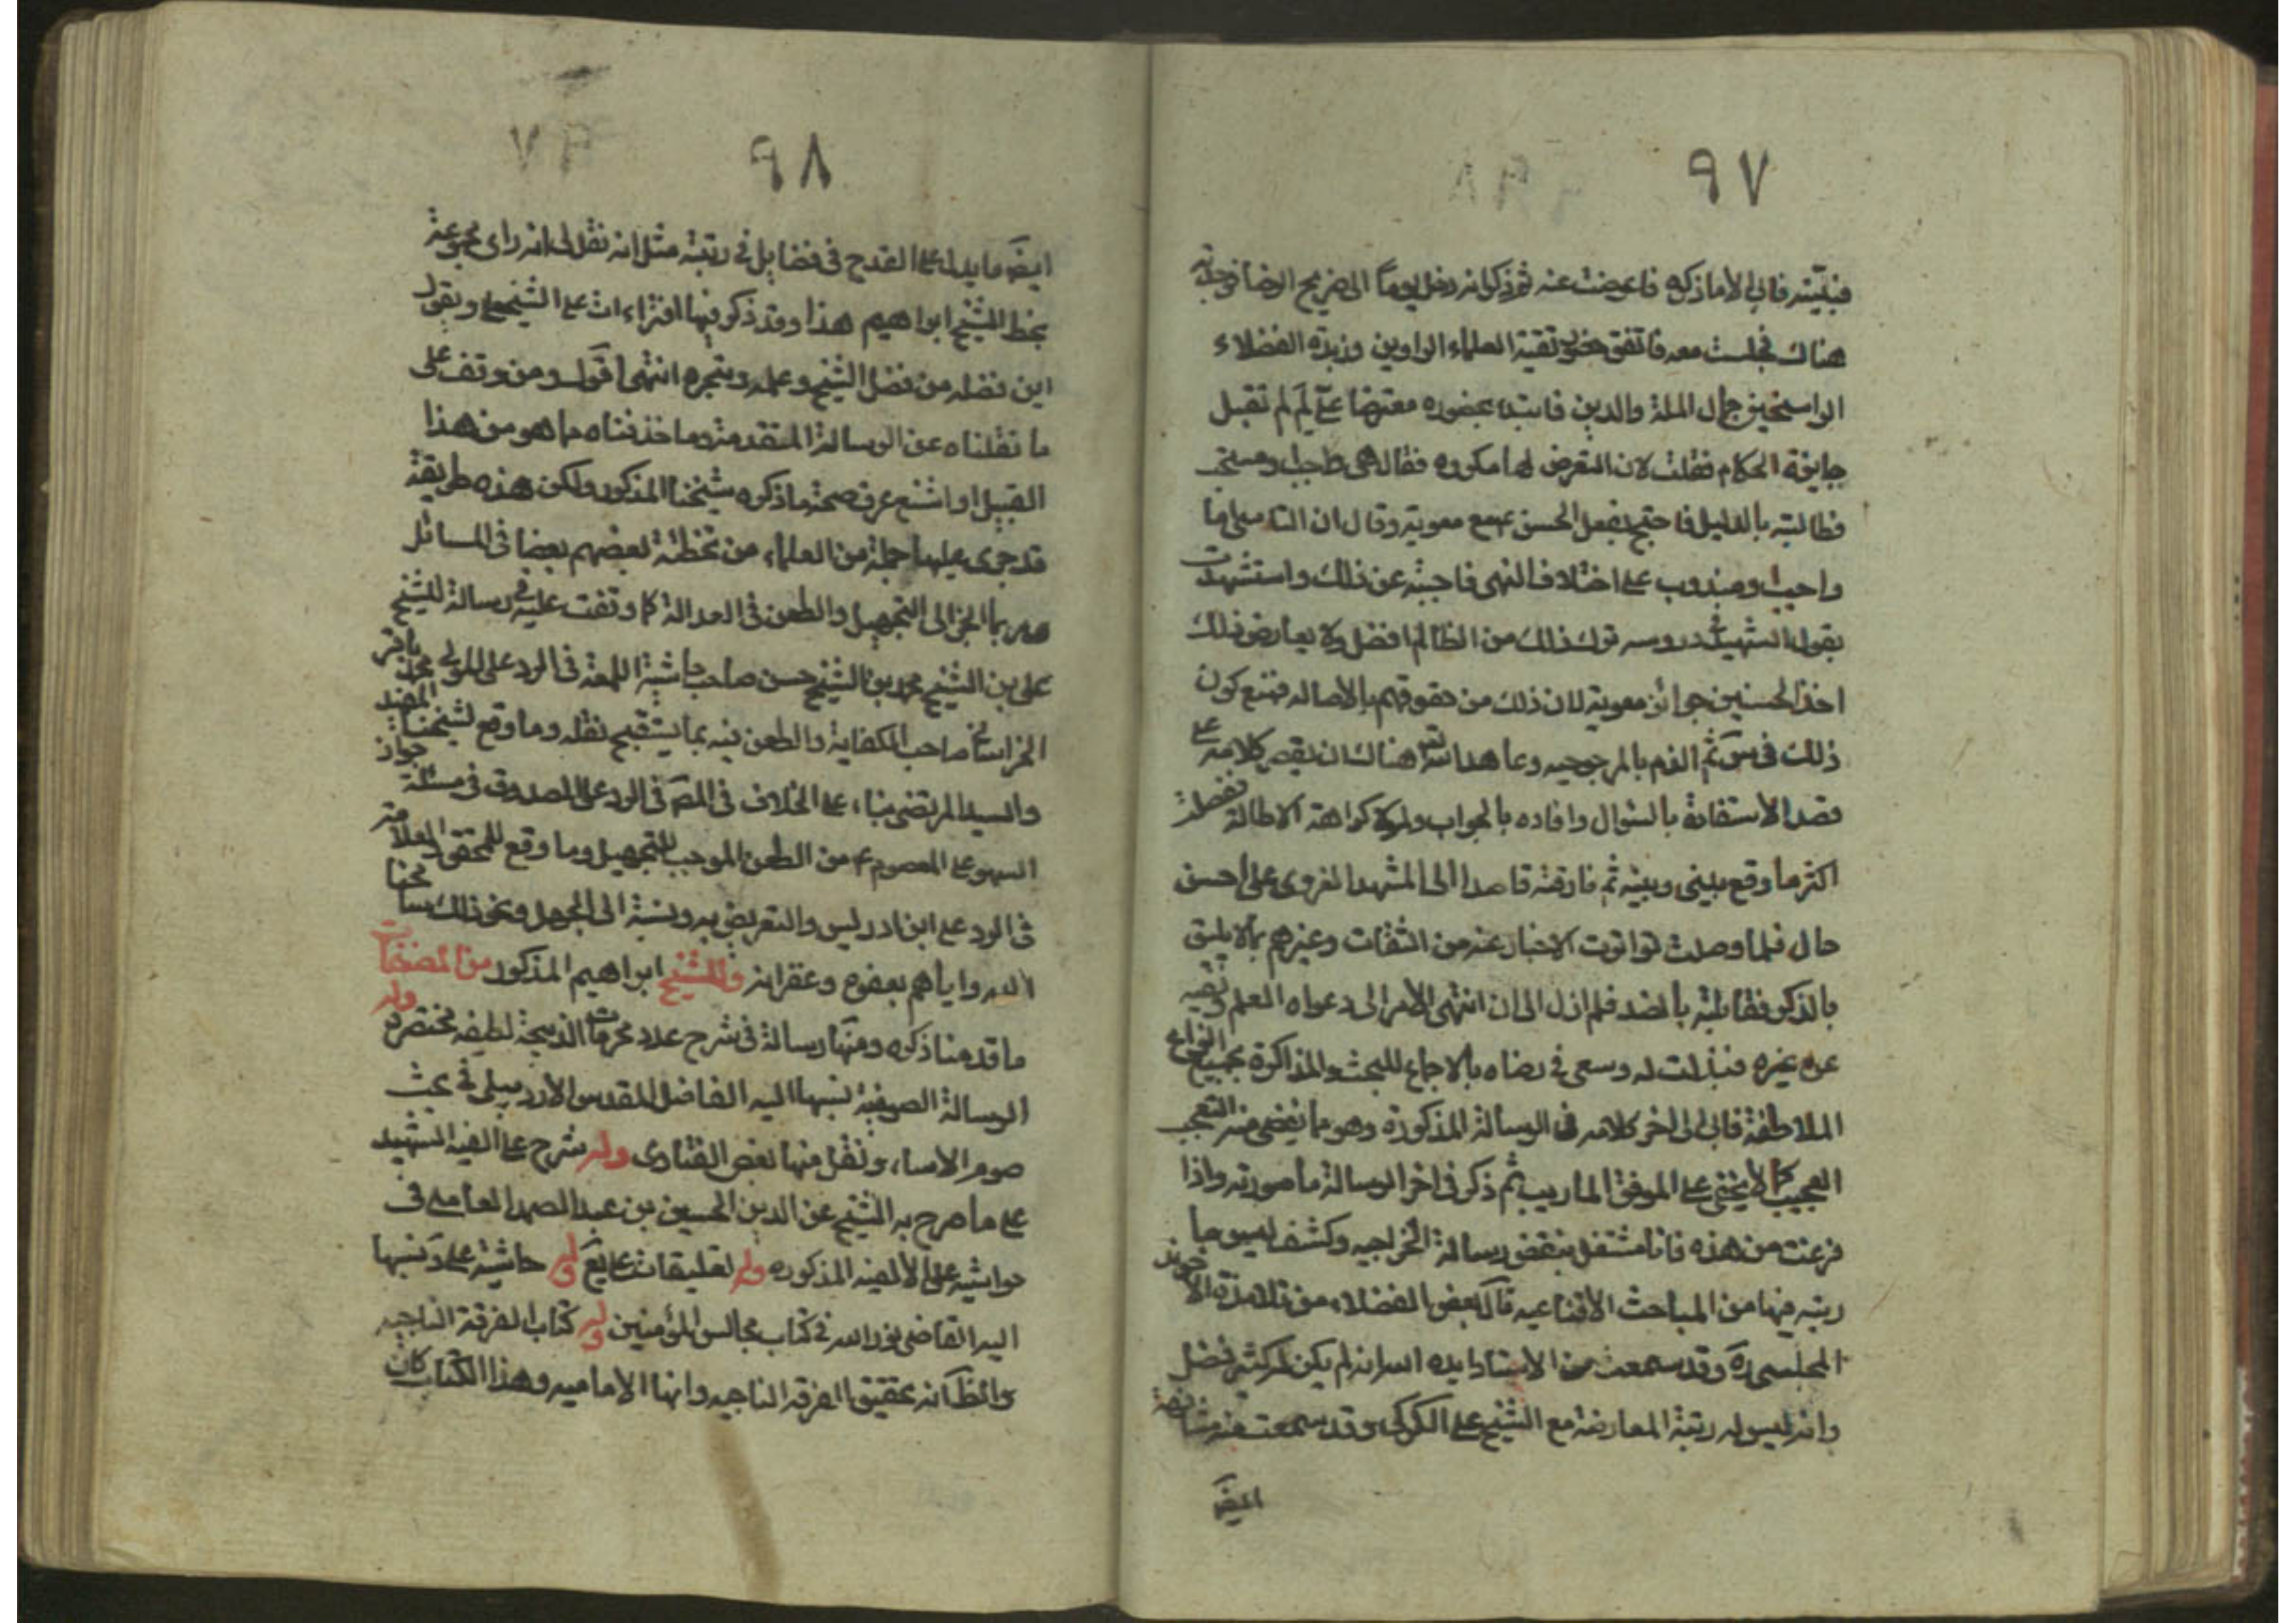 ٩٧
فبينته فابى الا ما ذكره فاعرضت عنه ثم ذكر انه دخل يوما الى ضريح الرضا فوجدته
هناك فجلست معه فاتفق حضور بقية العلماء الراوين وزبدة الفضلاء
الراسخين جمال الملة والدين فابتداء بحضوره معترضا علي لم لم تقبل
جايزة الحكام فقلت لان التعرض لها مكروه فقال هي واجب او مستحب
فطالبته بالدليل فاحتج بفعل الحسن ع مع معوية وقال ان التاسي اما
واجب او مندوب على اختلاف النهي فاجبته عن ذلك واستشهدت
بقول الشهيد في دروسه ترك ذلك من الظالم افضل ولا يعارض ذلك
اخذ الحسنين جوائز معوية لان ذلك من حقوقهم بالاصالة فمنع كون
ذلك في ثم الذم بالمرجوحيه وعاهد الله هناك ان يقصر كلامه على
قصد الاستفادة بالسؤال وافاده بالجواب ولولا كراهة الاطالة
اكثر ما وقع بيني وبينه ثم فارقته قاصدا الى المشهد الغروى على احسن
حال فلما وصلت تواترت الاخبار عنه من الثقات وغيرهم بما لا يليق
بالذكر فقابلته بالضد فلم ازل الى ان انتهى الامر الى دعواه العلم ونفيه
عن غيره فبذلت له وسعى في رضاه بالاجماع للبحث والمذاكرة بجميع انواع
الملاطفة فابى الى اخر كلامه في الرسالة المذكورة وهو مما يقضى منه التعجب
العجيب كما لا يخفى على الموفق المار يب ثم ذكر في اخر الرسالة ما صورته واذا
فرغت من هذه فانا مشتغل بنقض رسالة الخراجيه وكشف لبس ما
رتبه فيها من المباحث الاقناعيه قال بعض الفضلاء من تلامذة الاخوند
المجلسي ره وقد سمعت من الاستاد ايده الله انه لم يكن له كثير فضل
وانه ليس له رتبة المعارضة مع الشيخ على الكركي وقد سمعت منه مشافهة
ايضا
٩٨
ايضا ما يدل على القدح في فضايل في رتبته مثل انه نقل لى انه راى مجموعة
بخط الشيخ ابراهيم هذا وقد ذكر فيها افتراءات على الشيخ علي ويقول
اين فضله من فضل الشيخ وعلمه وتبحره انتهى اقول ومن وقف على
ما نقلناه عن الرسالة المتقدمة وما حذفناه مما هو من هذا
القبيل او اشنع عرف صحة ما ذكره شيخنا المذكور ولكن هذه طريقة
قد جرى عليها جملة من العلماء من تخطئة بعضهم بعضا في المسائل
وربما انجر الى التجهيل والطعن في العدالة كما وقفت عليه في رسالة للشيخ
على بن الشيخ محمد بن الشيخ حسن صاحب حاشية اللمعة في الرد على المولى محمد باقر
الخراساني صاحب الكفاية والطعن فيه بما يستقبح نقله وما وقع لشيخنا المفيد
والسيد المرتضى بناء على الخلاف في الرد على الصدوق في مسئلة جواز
السهو على المعصوم ع من الطعن الموجب للتجهيل وما وقع للمحقق العلامة
في الرد على ابن ادريس والتعريض به ونسبة الى الجهل ونحو ذلك سامحنا
الله واياهم بعفوه وغفرانه وللشيخ ابراهيم المذكور من المصنفات
ما قدمنا ذكره ومنها رسالة في شرح عدد محرمات الذبيحة لطيفه مختصره وله
الرسالة الصوفية نسبها اليه الفاضل المقدس الاردبيلي في بحث
صوم الامساء ونقل منها بعض الفتاوى وله شرح على الفيه الشهيد
على ما صرح به الشيخ عز الدين الحسين بن عبد الصمد العاملي في
حواشيه على الالفيه المذكوره وله تعليقات على يع وله حاشية على د نسبها
اليه القاضي نور الله في كتاب مجالس المؤمنين وله كتاب الفرقة الناجيه
والظ انه تحقيق الفرقة الناجيه وانها الاماميه وهذا الكتاب كان